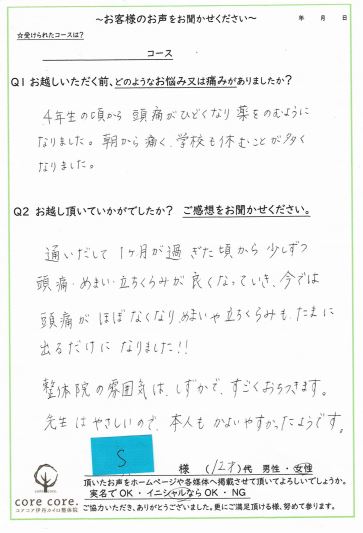 ～お客様のお声をお聞かせください～
年　月　日
☆受けられたコースは？
コース
Q1 お越しいただく前、どのようなお悩み又は痛みがありましたか？
4年生の頃から 頭痛がひどくなり 薬をのむように
なりました。朝から痛く、学校も休むことが多く
なりました。
Q2 お越し頂いていかがでしたか？ ご感想をお聞かせください。
通いだして 1ヶ月が過ぎた頃から 少しずつ
頭痛・めまい・立ちくらみが 良くなっていき、今では
頭痛が ほぼなくなり、めまいや立ちくらみも、たまに
出るだけに なりました!!
整体院の雰囲気は、しずかで、すごくおちつきます。
先生は やさしいので、本人も かよいやすかったようです。
S 様 (12才)代 男性・女性
頂いたお声をホームページや各媒体へ掲載させて頂いてよろしいでしょうか。
実名でOK・イニシャルならOK・NG
ご協力いただき、ありがとうございました。更にご満足頂ける様、努めて参ります。
core core.
コアコア伊丹カイロ整体院